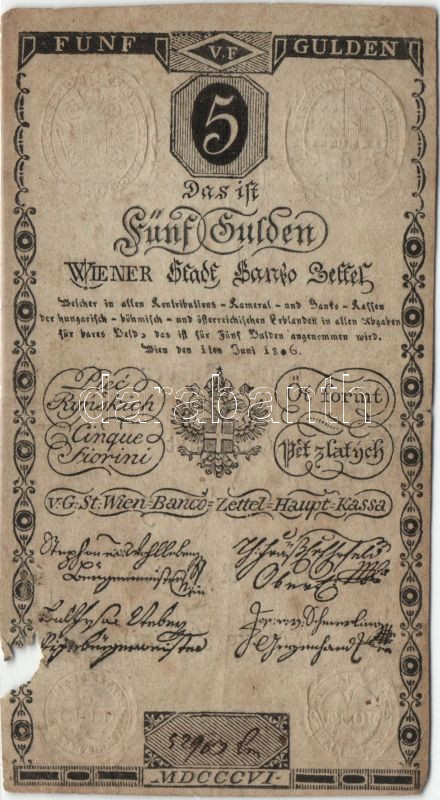 FÜNF V.F GULDEN
5
Das ist
Fünf Gulden
WIENER Stadt Banko Zettel
Welcher in allen Kontributions-Kameral-und Banko-Kassen
der hungarisch-böhmisch-und österreichischen Erblanden in allen Abgaben
für bares Geld, das ist für Fünf Gulden angenommen wird.
Wien den 1ten Juni 1806.
Pięć
Ryńskich
Öt forint
darabanth
Cinque
Fiorini
Pět zlatých
V.G. St. Wien-Banco-Zettel-Haupt-Kassa
Stephan
Bürgermeister
Wien
Oberst
MDCCCVI